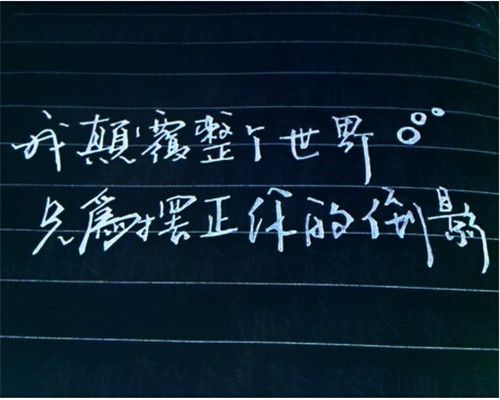 我顛覆整个世界。
只為摆正你的倒影